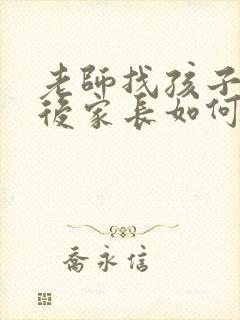 老師找孩子
後家長如何
喬永信